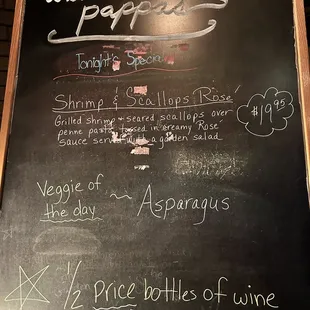 pappas
Tonight's Special
Shrimp & Scallops Rosé
Grilled shrimp & seared scallops over
penne pasta tossed in creamy Rosé
sauce served with a garden salad
$19.95
Veggie of
the day ~ Asparagus
1/2 price bottles of wine